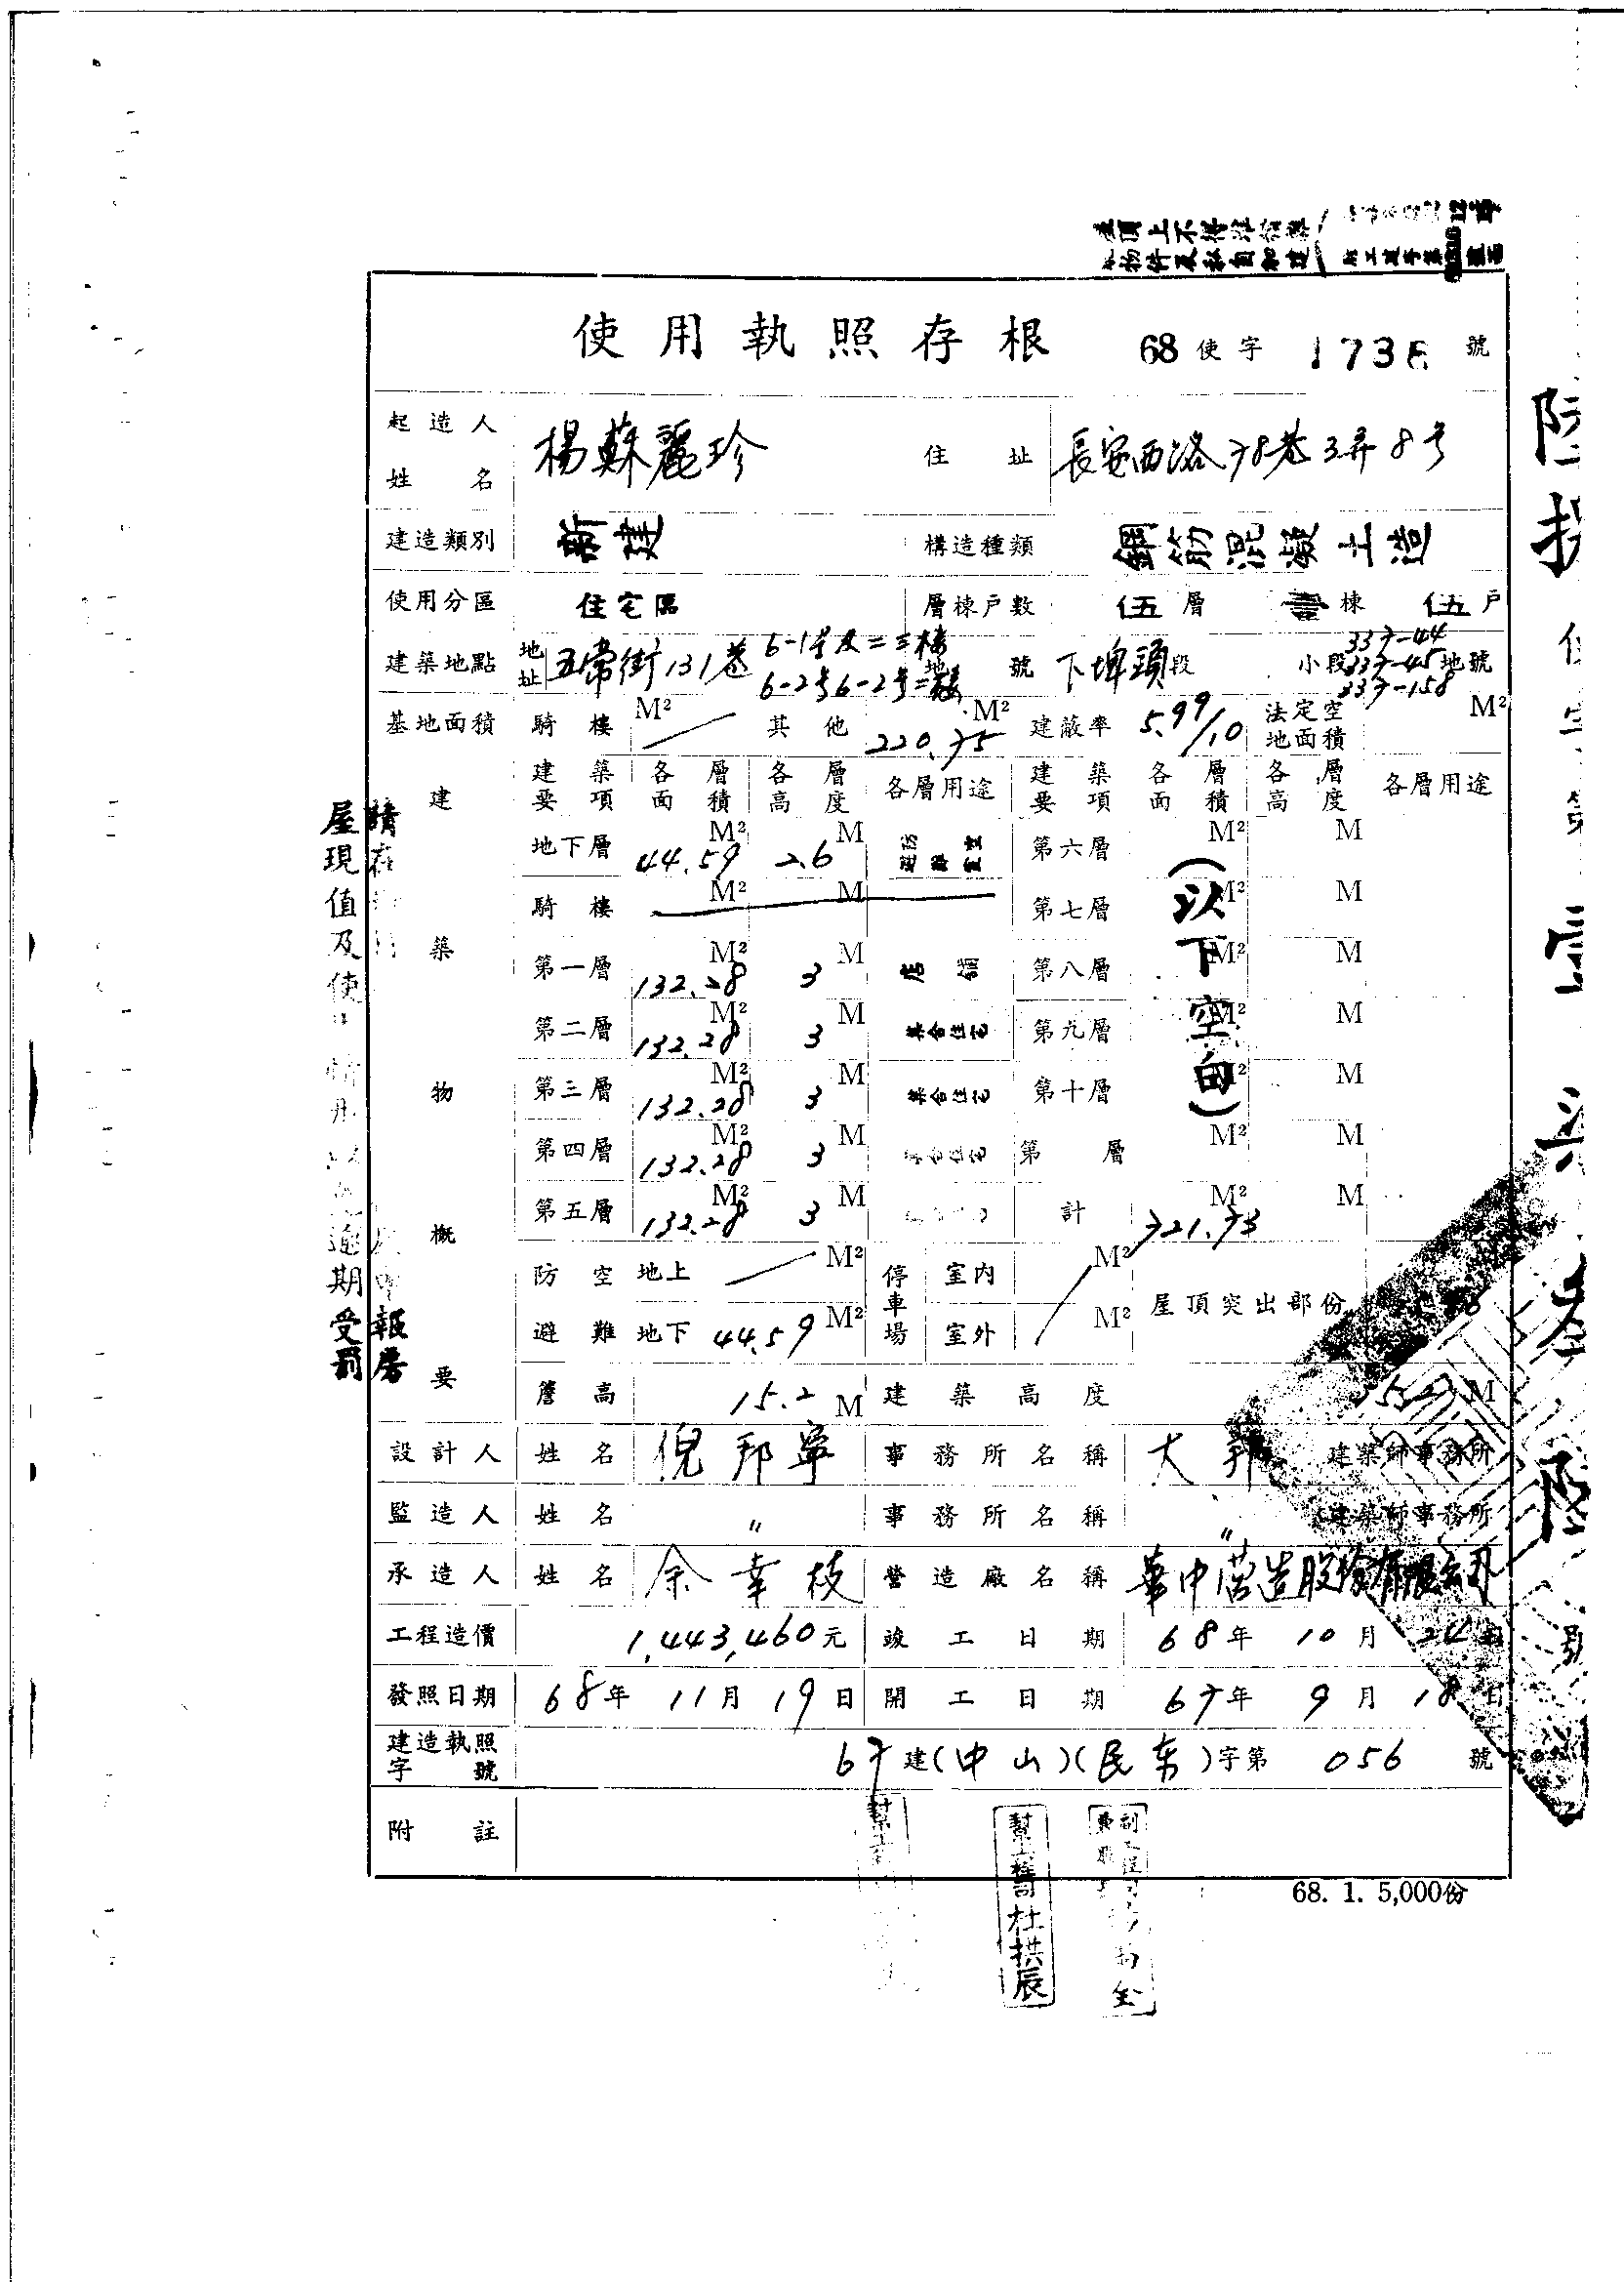 使用執照存根 68使字 173 號
起造人姓名 楊蘇麗珍 住址 長安西路78巷3弄8号
建造類別 新建 構造種類 鋼筋混凝土造
使用分區 住宅區 層棟戶數 伍層 壹棟 伍戶
建築地點 地址 五常街131巷 6-1号及二三樓 6-2号6-2号二樓 地號 下埤頭段 小段 337-44 337-45 337-158 地號
基地面積 騎樓 M² 其他 220.75 M² 建蔽率 5.99/10 法定空地面積 M²
建築物概要
建築要項 各層面積 各層高度 各層用途 建築要項 各層面積 各層高度 各層用途
地下層 44.59 M² 2.6 M 防空避難室 第六層 M² M
騎樓 M² M 第七層 M² M
第一層 132.28 M² 3 M 店舖 第八層 M² M
第二層 132.28 M² 3 M 集合住宅 第九層 M² M
第三層 132.28 M² 3 M 集合住宅 第十層 M² M
(以下空白)
第四層 132.28 M² 3 M 集合住宅 第 層 M² M
第五層 132.28 M² 3 M 計 721.73 M² M
防空避難 地上 M² 停車場 室內 M² 屋頂突出部份
地下 44.59 M² 室外 M²
簷高 15.2 M 建築高度 M
設計人 姓名 倪邦寧 事務所名稱 大邦 建築師事務所
監造人 姓名 〃 事務所名稱 〃 建築師事務所
承造人 姓名 余幸枝 營造廠名稱 華中營造股份有限公司
工程造價 1,443,460元 竣工日期 68年10月24日
發照日期 68年11月19日 開工日期 67年9月18日
建造執照字號 67建(中山)(民东)字第 056 號
附註
68. 1. 5,000份
杜拱辰
屋現值及使
逾期受罰